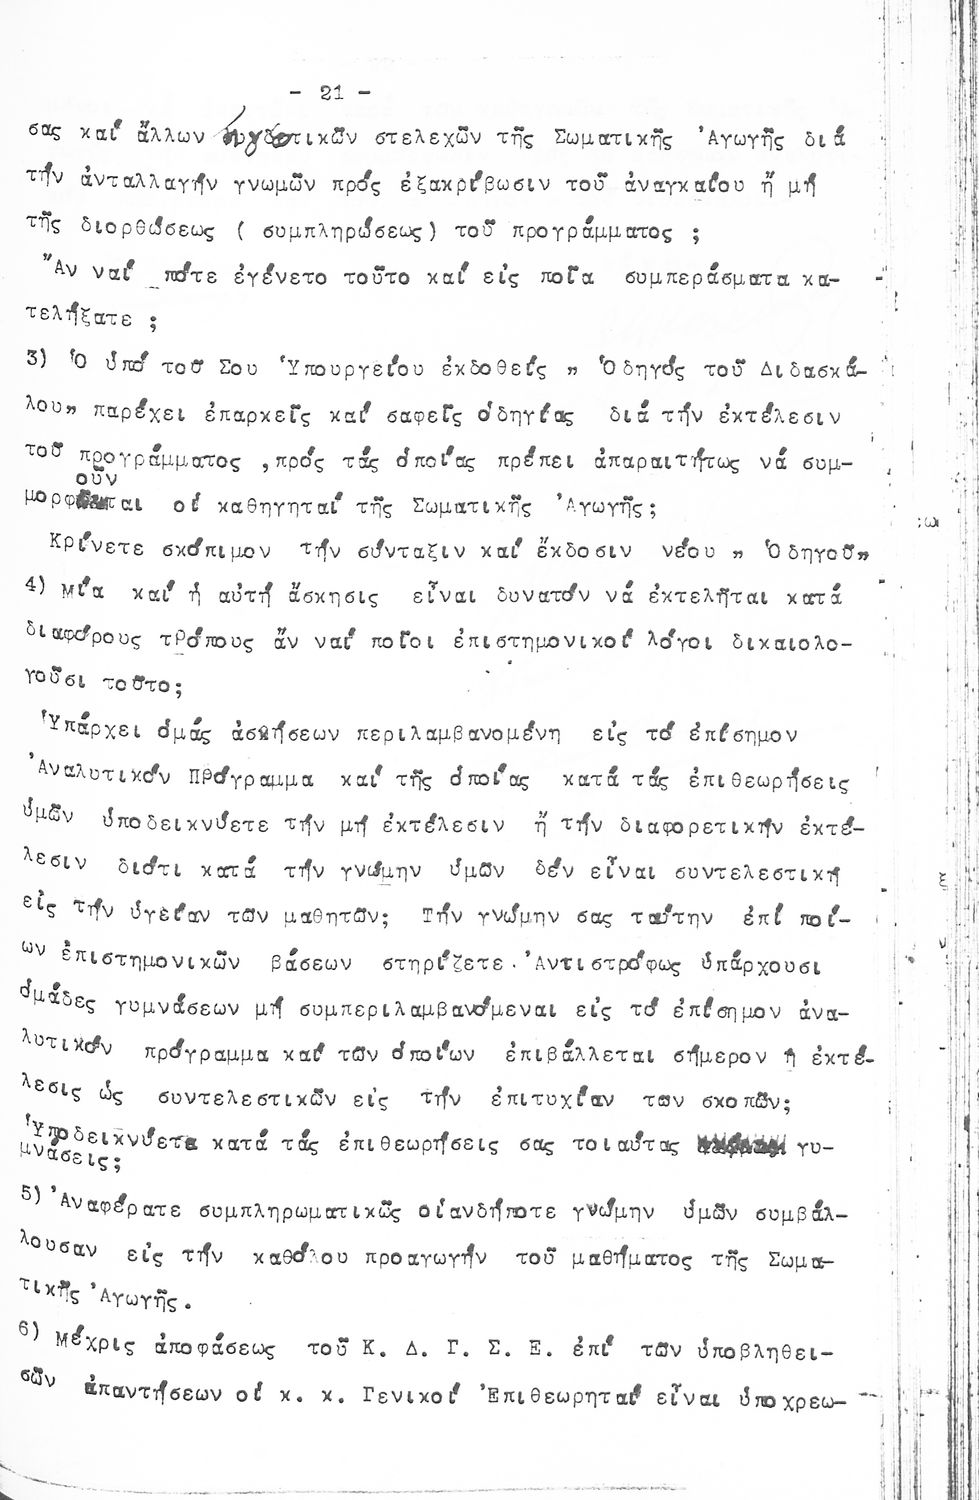 - 21 -
σας καί ἄλλων ἡγετικῶν στελεχῶν τῆς Σωματικῆς Ἀγωγῆς διά
τήν ἀνταλλαγήν γνωμῶν πρός ἐξακρίβωσιν τοῦ ἀναγκαίου ἤ μή
τῆς διορθώσεως ( συμπληρώσεως) τοῦ προγράμματος ;
Ἄν ναί πότε ἐγένετο τοῦτο καί εἰς ποῖα συμπεράσματα κα-
τελήξατε ;
3) Ὁ ὑπό τοῦ Σου Ὑπουργείου ἐκδοθείς " Ὁδηγός τοῦ Διδασκά-
λου" παρέχει ἐπαρκεῖς καί σαφεῖς ὁδηγίας διά τήν ἐκτέλεσιν
τοῦ προγράμματος ,πρός τάς ὁποίας πρέπει ἀπαραιτήτως νά συμ-
μορφοῦνται οἱ καθηγηταί τῆς Σωματικῆς Ἀγωγῆς;
Κρίνετε σκόπιμον τήν σύνταξιν καί ἔκδοσιν νέου " Ὁδηγοῦ"
4) Μία καί ἡ αὐτή ἄσκησις εἶναι δυνατόν νά ἐκτελῆται κατά
διαφόρους τρόπους ἄν ναί ποῖοι ἐπιστημονικοί λόγοι δικαιολο-
γοῦσι τοῦτο;
Ὑπάρχει ὁμάς ἀσκήσεων περιλαμβανομένη εἰς τό ἐπίσημον
Ἀναλυτικόν Πρόγραμμα καί τῆς ὁποίας κατά τάς ἐπιθεωρήσεις
ὑμῶν ὑποδεικνύετε τήν μή ἐκτέλεσιν ἤ τήν διαφορετικήν ἐκτέ-
λεσιν διότι κατά τήν γνώμην ὑμῶν δέν εἶναι συντελεστική
εἰς τήν ὑγείαν τῶν μαθητῶν; Τήν γνώμην σας ταύτην ἐπί ποί-
ων ἐπιστημονικῶν βάσεων στηρίζετε.Ἀντιστρόφως ὑπάρχουσι
ὁμάδες γυμνάσεων μή συμπεριλαμβανόμεναι εἰς τό ἐπίσημον ἀνα-
λυτικόν πρόγραμμα καί τῶν ὁποίων ἐπιβάλλεται σήμερον ἡ ἐκτέ-
λεσις ὡς συντελεστικῶν εἰς τήν ἐπιτυχίαν των σκοπῶν;
Ὑποδεικνύετε κατά τάς ἐπιθεωρήσεις σας τοιαύτας γυ-
μνάσεις;
5) Ἀναφέρατε συμπληρωματικῶς οἱανδήποτε γνώμην ὑμῶν συμβάλ-
λουσαν εἰς τήν καθόλου προαγωγήν τοῦ μαθήματος τῆς Σωμα-
τικῆς Ἀγωγῆς.
6) Μέχρις ἀποφάσεως τοῦ Κ. Δ. Γ. Σ. Ε. ἐπί τῶν ὑποβληθει-
σῶν ἀπαντήσεων οἱ κ. κ. Γενικοί Ἐπιθεωρηταί εἶναι ὑποχρεω-